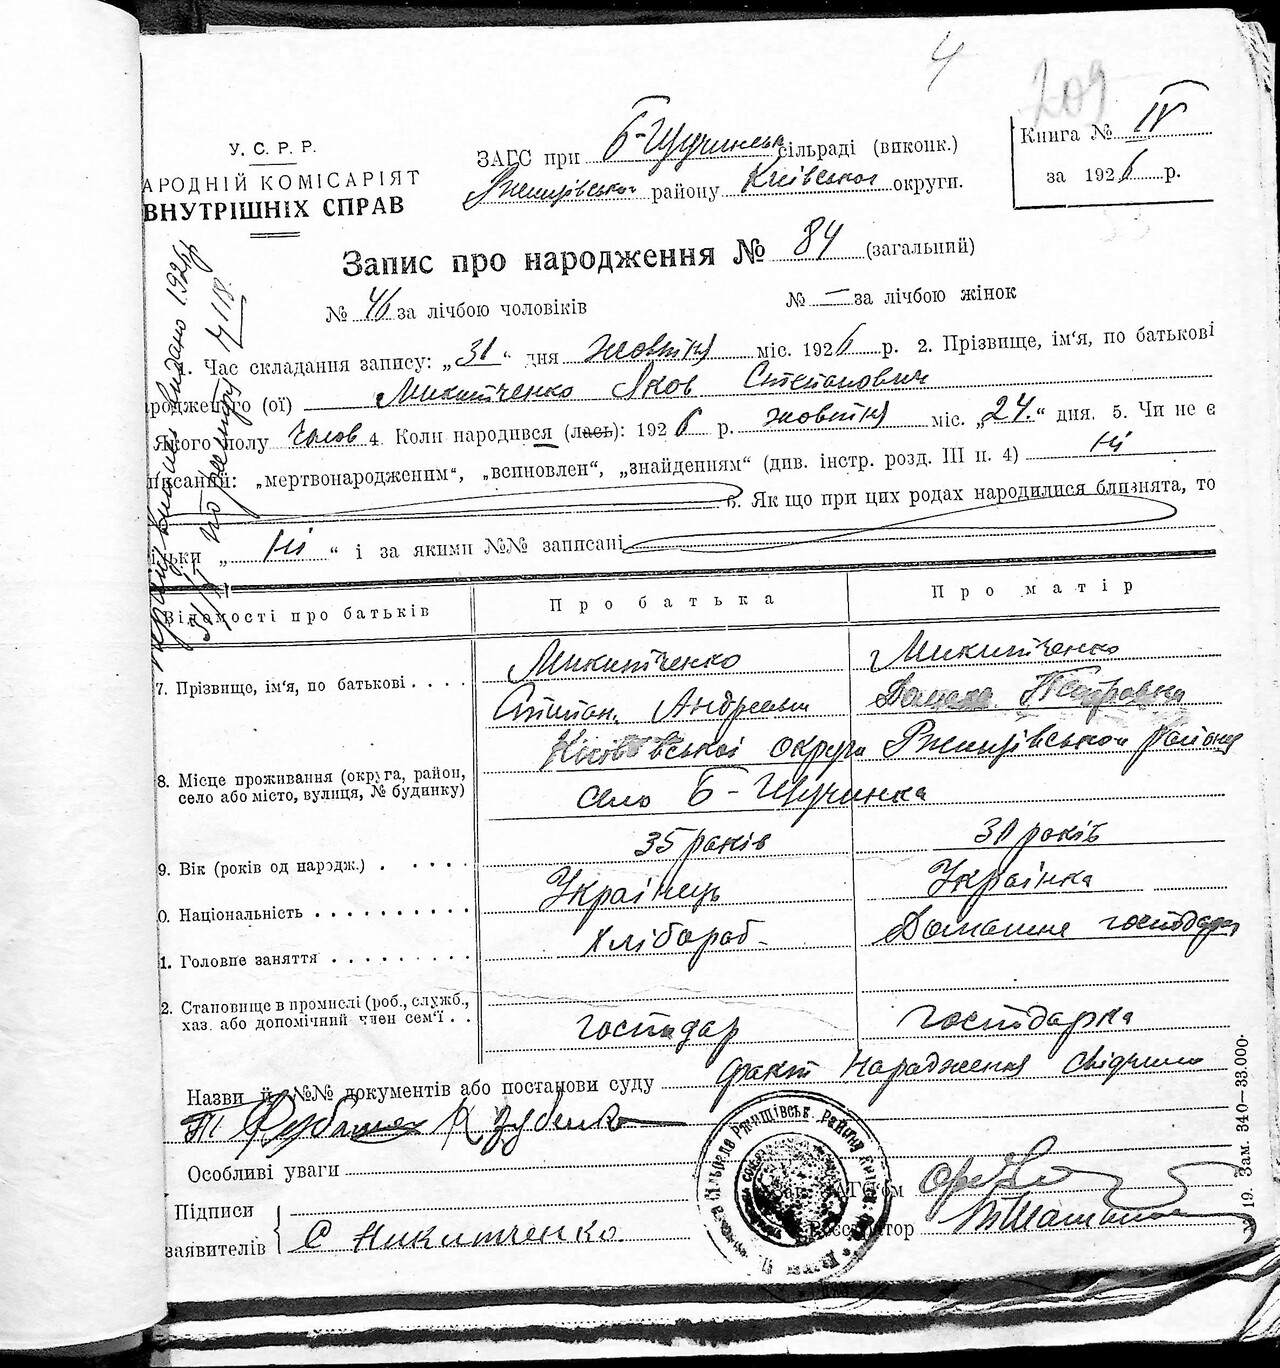 4
209
У. С. Р. Р.
АРОДНІЙ КОМІСАРІЯТ
ВНУТРІШНІХ СПРАВ
ЗАГС при Б-Щучинськ сільраді (виконк.)
Ржищівської району Київської округи.
Книга № IV
за 1926 р.
Запис про народження № 84 (загальний)
№ 46 за лічбою чоловіків № — за лічбою жінок
1. Час складання запису: „31“ дня жовтня міс. 1926 р. 2. Прізвище, ім'я, по батькові
родженого (ої) Микитченко Яков Степанович
Якого полу чолов 4. Коли народився (лась): 1926 р. жовтня міс. „24.“ дня. 5. Чи не є
писаний: „мертвонародженим“, „всиновлен“, „знайденням“ (див. інстр. розд. III п. 4) ні
6. Як що при цих родах народилися близнята, то
ільки „ Ні “ і за якими №№ записані
видано 1926 р
по реєстру № 118.
Відомості про батьків Про батька Про матір
7. Прізвище, ім'я, по батькові . . . . Микитченко Микитченко
Степан Андреєвич Петровна
8. Місце проживання (округа, район, село або місто, вулиця, № будинку) Київської округи Ржищівського району
село Б-Щучинка
9. Вік (років од народж.) . . . . . 35 років 30 років
0. Національність . . . . . . . . . . Українець Українка
1. Головне заняття . . . . . . . . . Хлібороб- Домашнє господар
2. Становище в промислі (роб., служб.,
хаз. або допомічний член сем'ї . . господар господарка
Назви й №№ документів або постанови суду факт народження свідчили
Особливі уваги
Підписи
заявителів С Микитченко.
Зав. ЗАГСом
Реєстратор
19. Зам. 340—33.000·